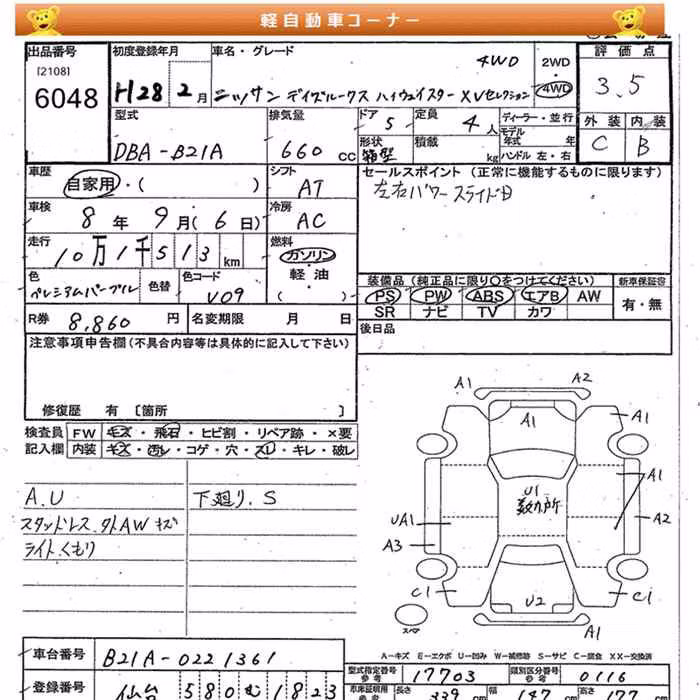 軽自動車コーナー
出品番号 初度登録年月 車名・グレード 評価点
[2108]
6048 H28 2月 ニッサン デイズルークス ハイウェイスター XVセレクション 4WD 2WD 4WD 3.5
型式 排気量 ドア 定員 ディーラー・並行 外装 内装
DBA-B21A 660cc 5 4人 モデル年式 年 C B
形状 箱型 積載 kg ハンドル 左・右
車歴 シフト セールスポイント(正常に機能するものに限ります)
自家用・( ) AT 左右パワースライドD
車検 冷房
8年9月(6日) AC
走行 燃料
10万1千513km ガソリン
軽・油
( )
色 色替 色コード 装備品(純正品に限り○をつけてください) 新車保証書
プレミアムパープル V09 PS PW ABS エアB AW 有・無
SR ナビ TV カワ
R券 8,860円 名変期限 月 日 後日品
注意事項申告欄(不具合内容等は具体的に記入して下さい)
修復歴 有 [箇所 ]
検査員 FW キズ・飛石・ヒビ割・リペア跡・×要
記入欄 内装 キズ・汚レ・コゲ・穴・スレ・キレ・破レ
A.U 下廻り.S
スタッドレス.外AWキズ
ライトくもり
A1 A2
A1 A1
A1
U1
数カ所
UA1 A2
A3
C1 C1
U2
スペア
XX
A-キズ E-エクボ U-凹み W-補修跡 S-サビ C-腐食 XX-交換済
車台番号 B21A-0221361 型式指定番号 参考 17703 類別区分番号 参考 0116
登録番号 仙台 580 む 1823 車庫証明用 参考 長さ 339cm 幅 147cm 高さ 177cm